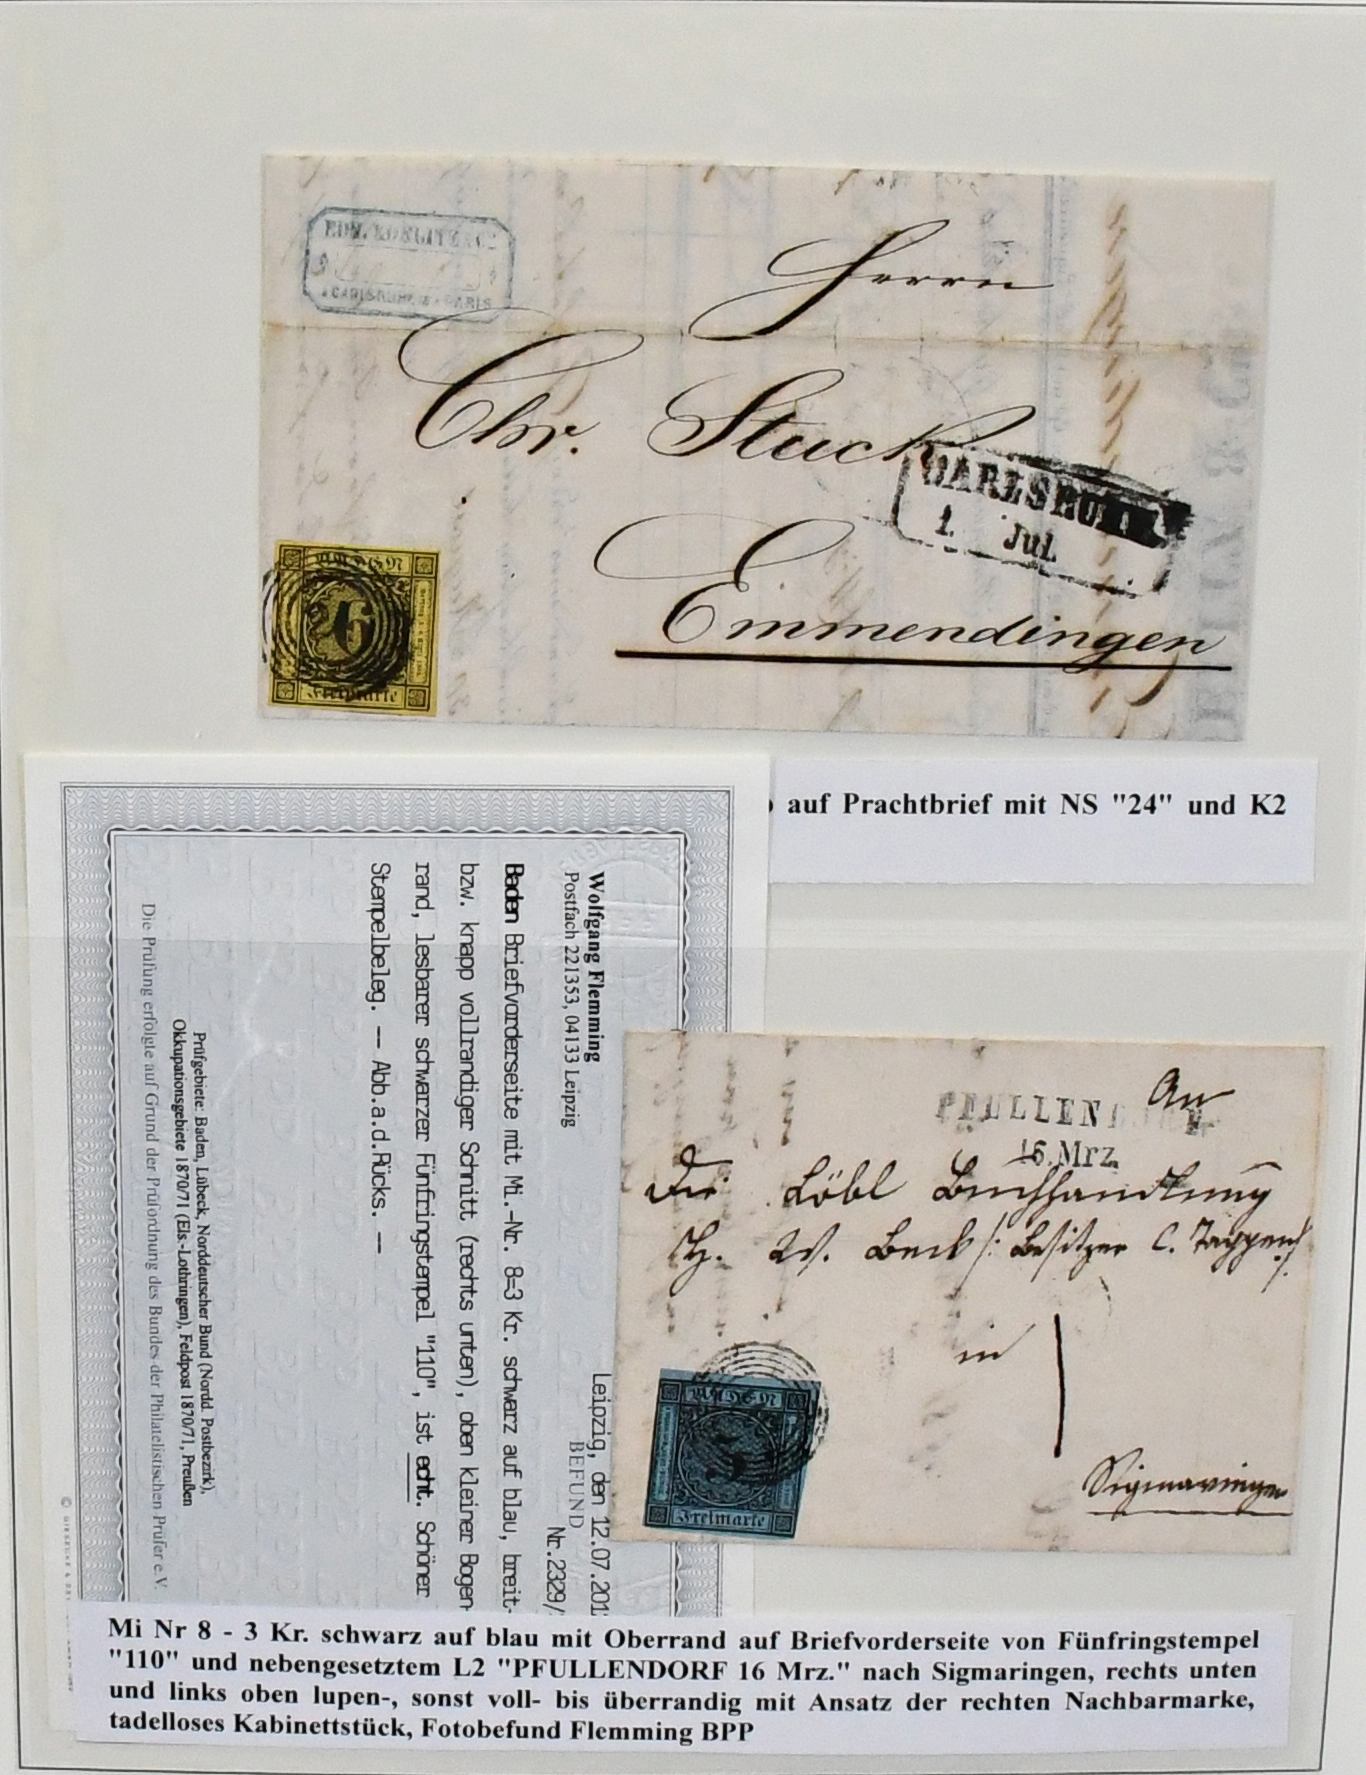 CARLSRUHE • PARIS
Herrn
Chr. Stuck
CARLSRUHE
1. Jul.
Emmendingen
BADEN
6
Freimarke
auf Prachtbrief mit NS "24" und K2
Wolfgang Flemming
Postfach 221353, 04133 Leipzig
Leipzig, den 12.07.201
BEFUND
Nr.2329/
Baden Briefvorderseite mit Mi.-Nr. 8=3 Kr. schwarz auf blau, breit-
bzw. knapp vollrandiger Schnitt (rechts unten), oben kleiner Bogen-
rand, lesbarer schwarzer Fünfringstempel "110", ist echt. Schöner
Stempelbeleg. -- Abb.a.d.Rücks. --
Prüfgebiete: Baden, Lübeck, Norddeutscher Bund (Nordd. Postbezirk),
Okkupationsgebiete 1870/71 (Els.-Lothringen), Feldpost 1870/71, Preußen
Die Prüfung erfolgte auf Grund der Prüfordnung des Bundes der Philatelistischen Prüfer e.V.
An
PFULLENDORF
16. Mrz.
Die Löbl Buchhandlung
W. Beck /: Besitzer C. Tappen :/
in
Sigmaringen
BADEN
3
Freimarke
Mi Nr 8 - 3 Kr. schwarz auf blau mit Oberrand auf Briefvorderseite von Fünfringstempel
"110" und nebengesetztem L2 "PFULLENDORF 16 Mrz." nach Sigmaringen, rechts unten
und links oben lupen-, sonst voll- bis überrandig mit Ansatz der rechten Nachbarmarke,
tadelloses Kabinettstück, Fotobefund Flemming BPP